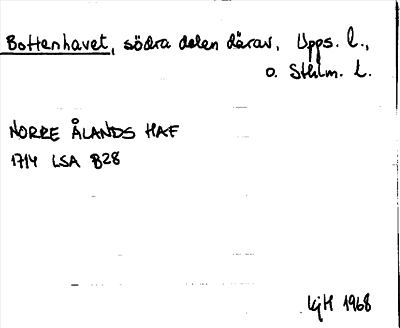 Bottenhavet, södra delen därav, Upps. l.,
o. Sthlm. L.
NORRE ÅLANDS HAF
1714 LSA B28
LjH 1968